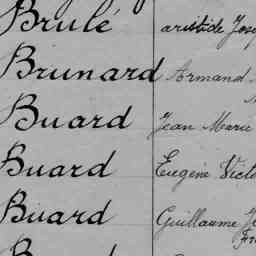 Brulé aristide
Brunard Armand
Buard Jean Marie
Buard Eugène
Buard Guillaume